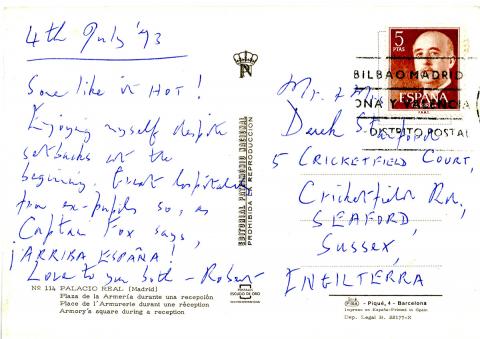 4th July '73
Some like it HOT!
Enjoying myself despite
setbacks at the
beginning. Great hospitality
from ex-pupils so, as
Captain Fox says,
¡ARRIBA ESPAÑA!
Love to you both - Robert
Nº 114 PALACIO REAL (Madrid)
Plaza de la Armería durante una recepción
Place de l'Armurerie durant une réception
Armory's square during a reception
EDITORIAL PATRIMONIO NACIONAL
PROHIBIDA LA REPRODUCCION
ESCUDO DE ORO
5
PTAS
ESPAÑA
BILBAO MADRID
ONA Y VALENCIA
DISTRITO POSTAL
Mr. & Mrs
Derek
5 CRICKETFIELD COURT,
Cricketfield Rd.,
SEAFORD,
Sussex,
INGLATERRA
- Piqué, 4 - Barcelona
Impreso en España-Printed in Spain
Dep. Legal B. 22177-X